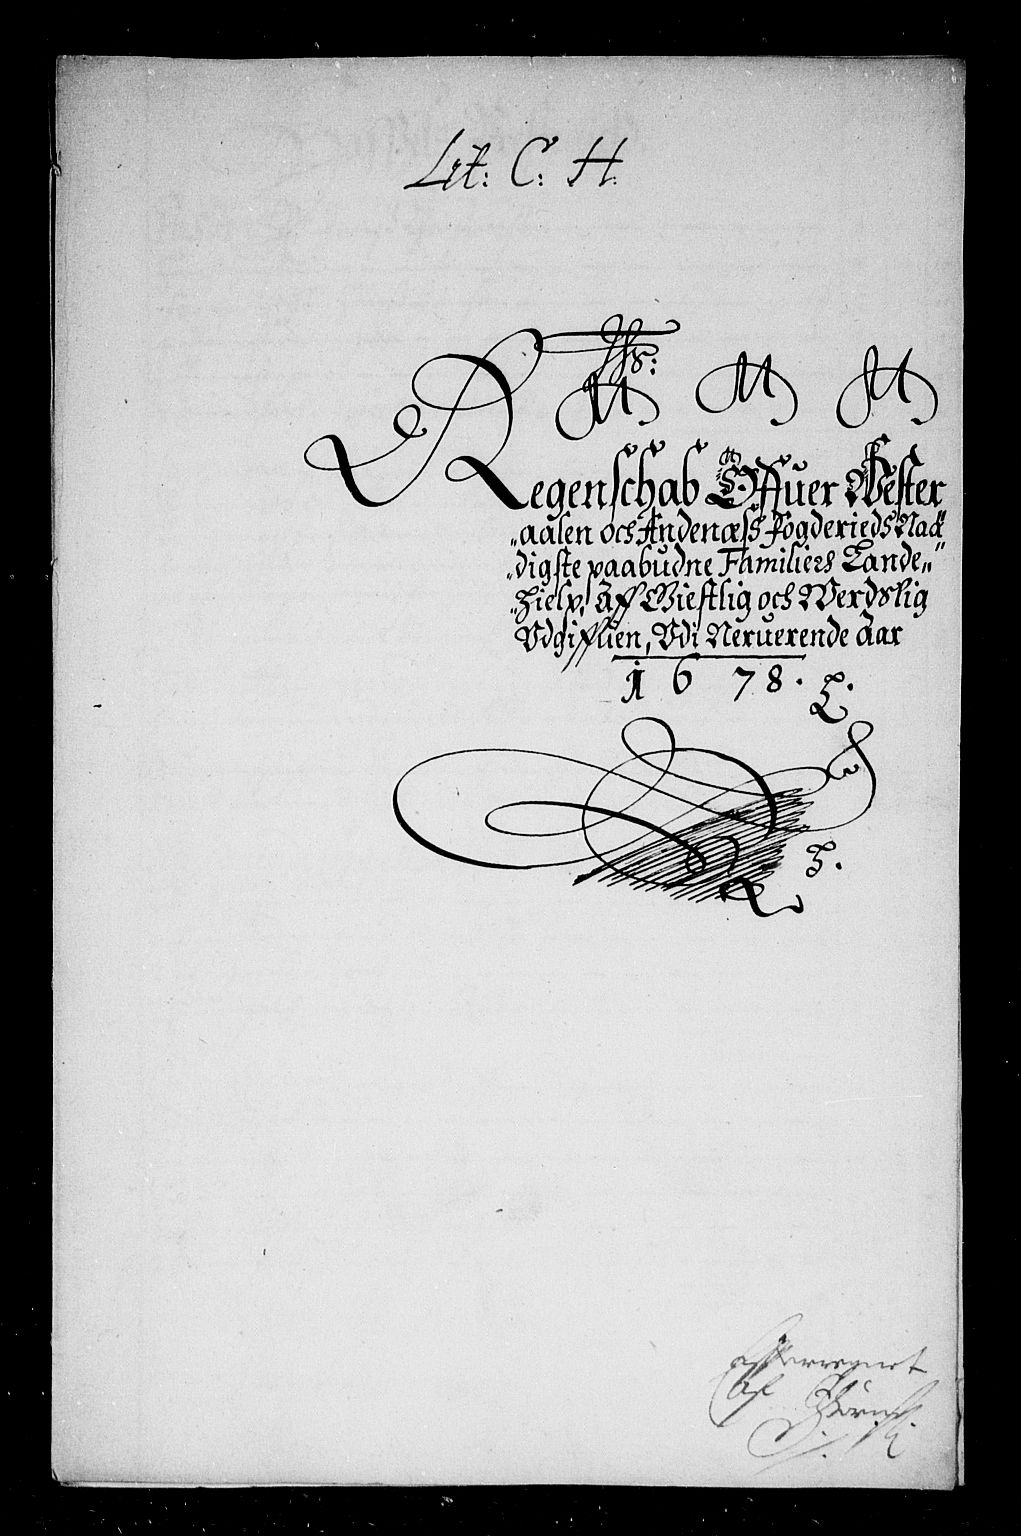 Lit: C: H:
Regenschab Offuer Wester
"aalen och Andenæss fogderieds Naa"
"digste paabudne Familiers Lande"
"hielp, Aff Giestlig och Werdslig
Vdgifften, Vdi Neruerende Aar
1678.
L.
Efterregnet
af